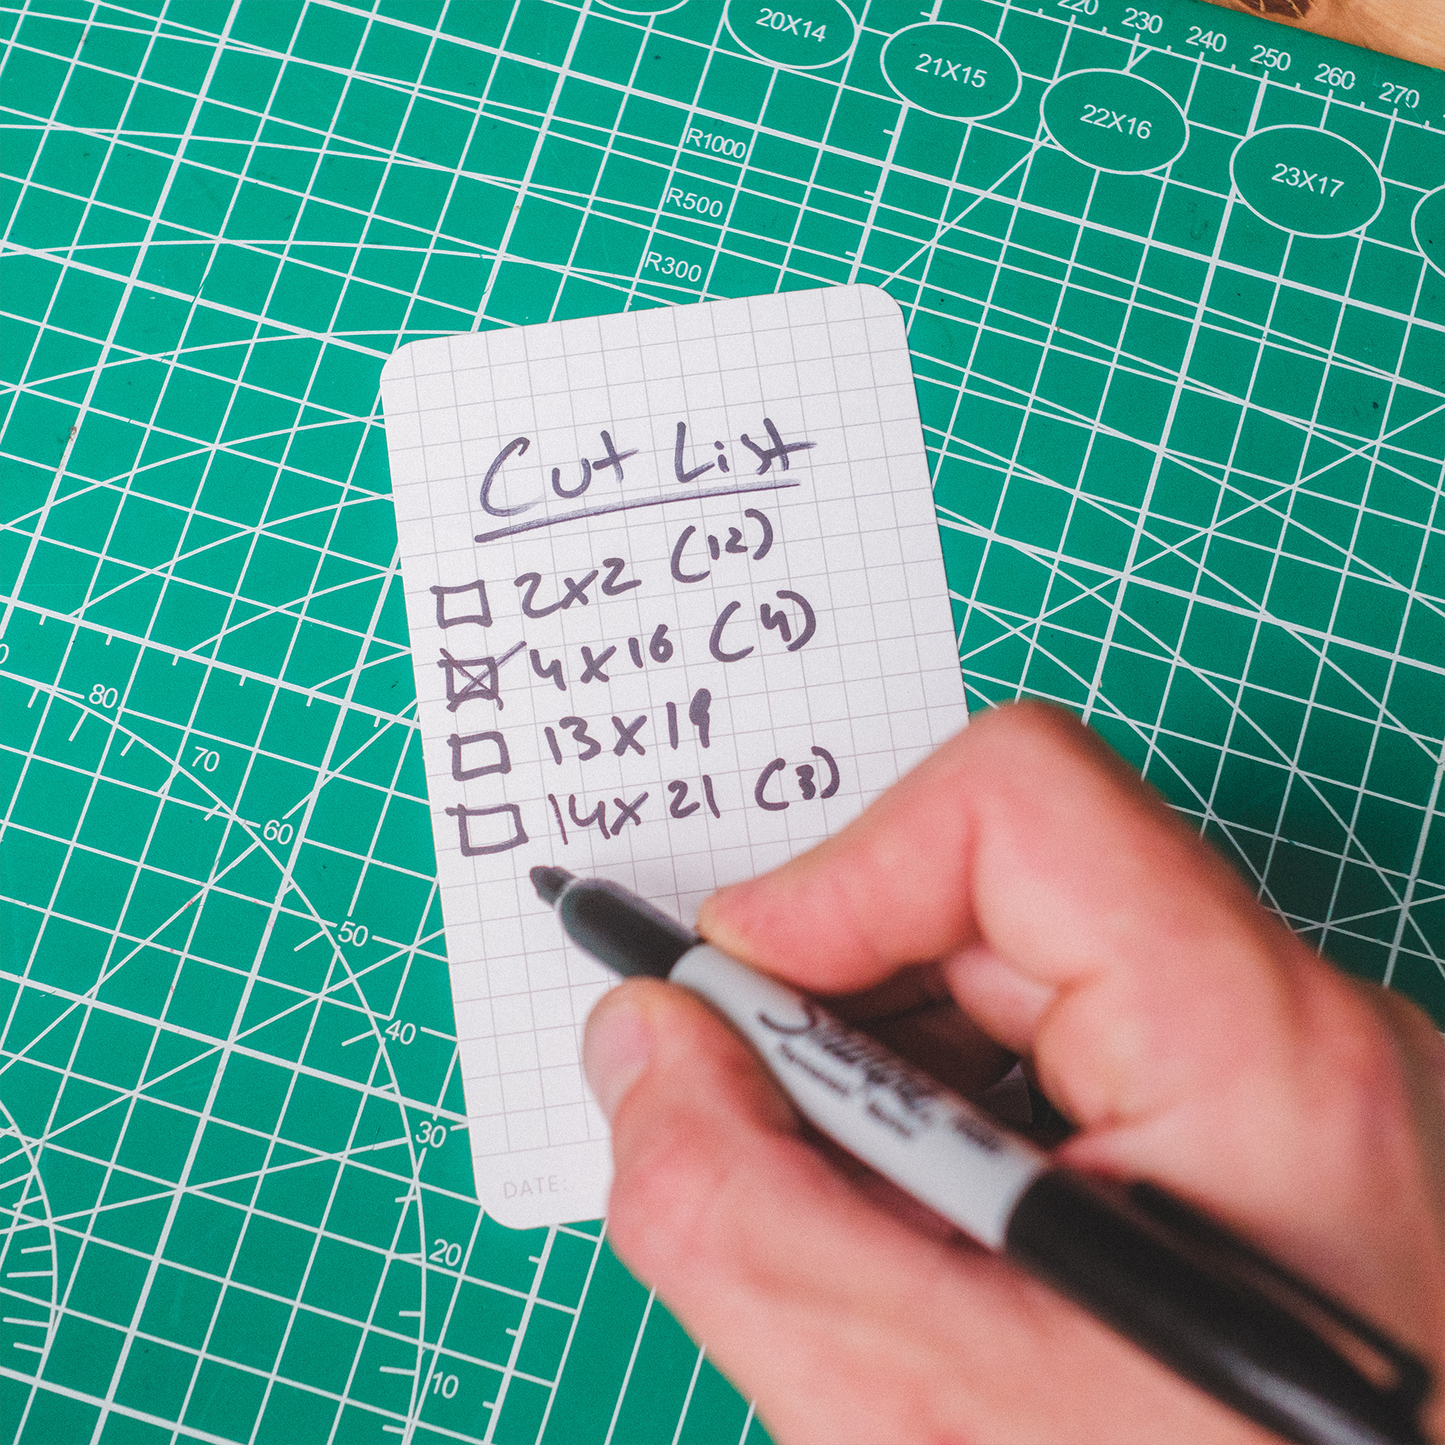 20X14
21X15
22X16
23X17
220 230 240 250 260 270
R1000
R500
R300
Cut List
2x2 (12)
4x16 (4)
13x19
14x21 (3)
80
70
60
50
40
30
20
10
DATE:
Sharpie